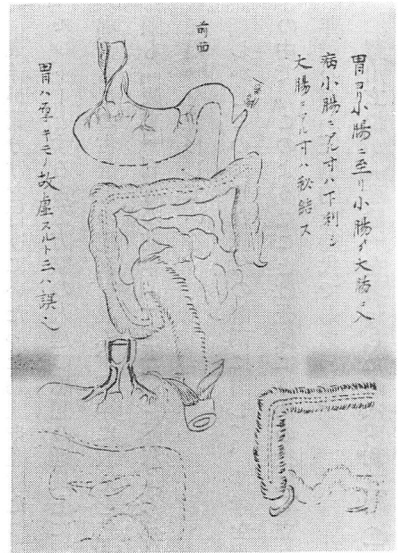 胃ヨリ小腸ニ至リ小腸ヨリ大腸ニ入
病小腸ニアル寸ハ下利シ
大腸ニアル寸ハ秘結ス
前面
胃ハ厚キモノ故虚スルト云ハ誤也